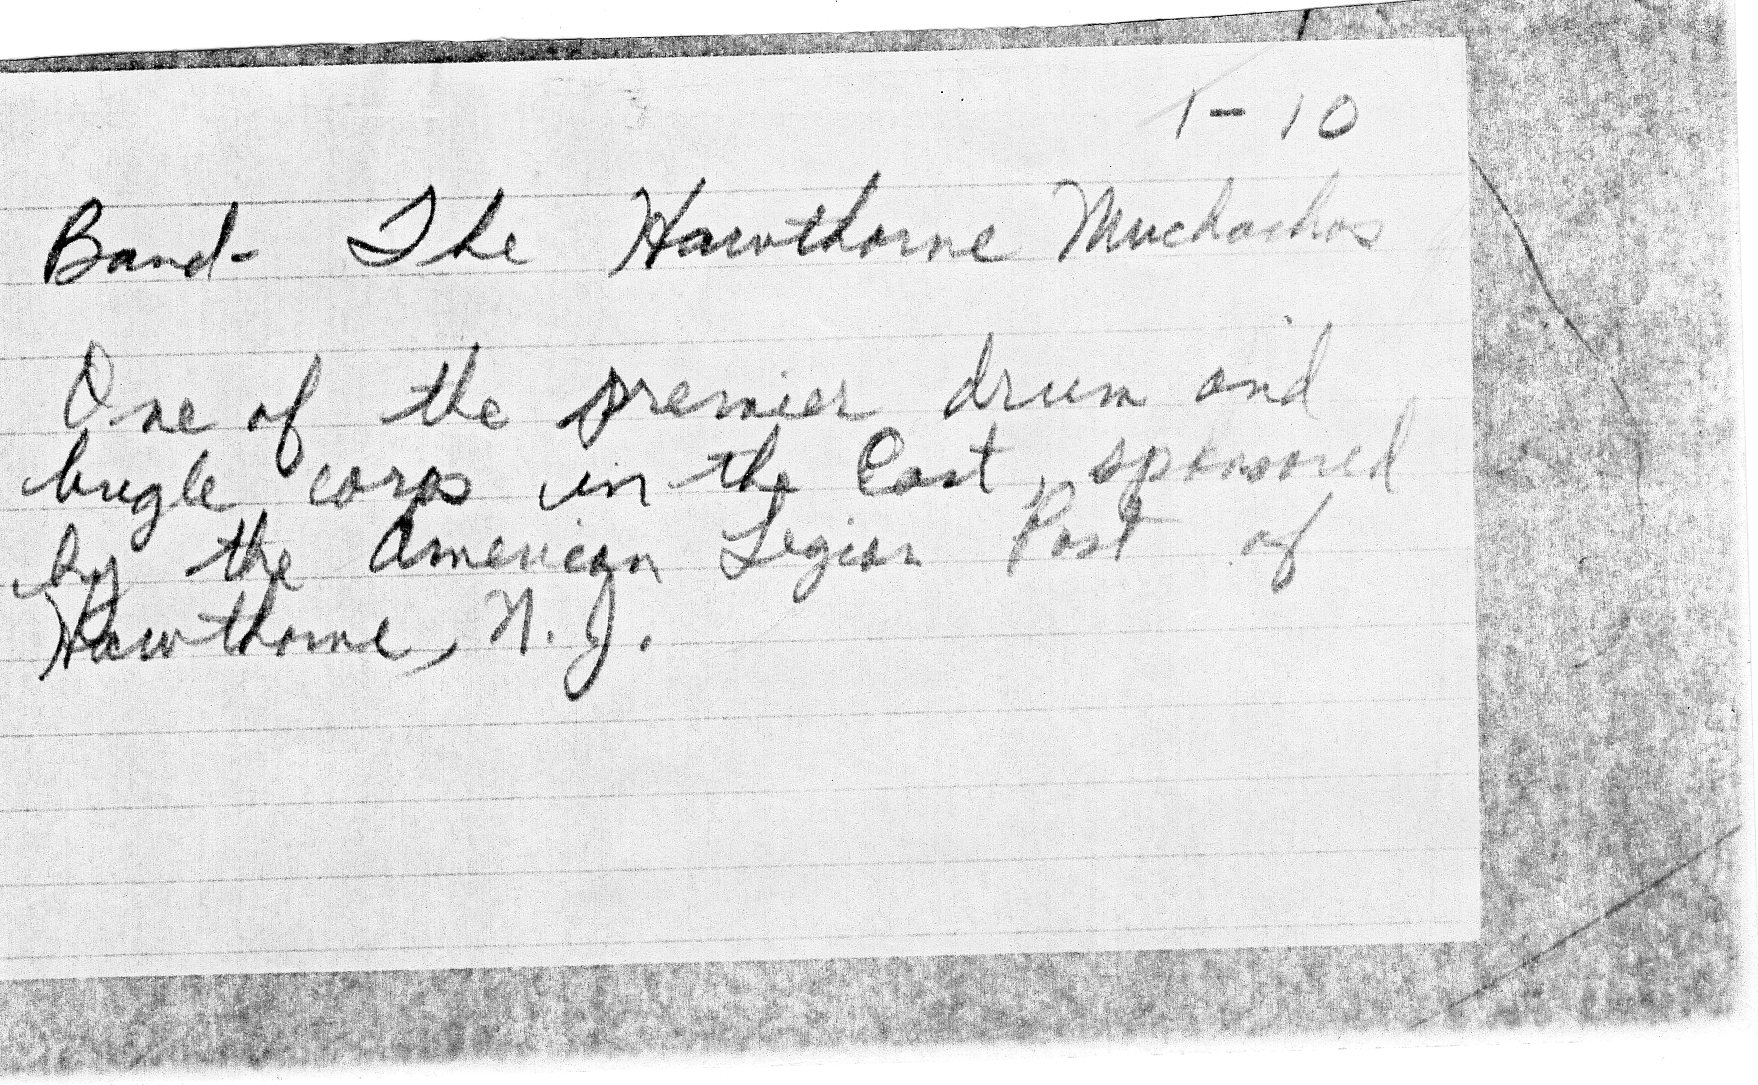 1-10
Band- The Hawthorne Muchachos
One of the premier drum and
bugle corps in the East, sponsored
by the American Legion Post of
Hawthorne, N.J.